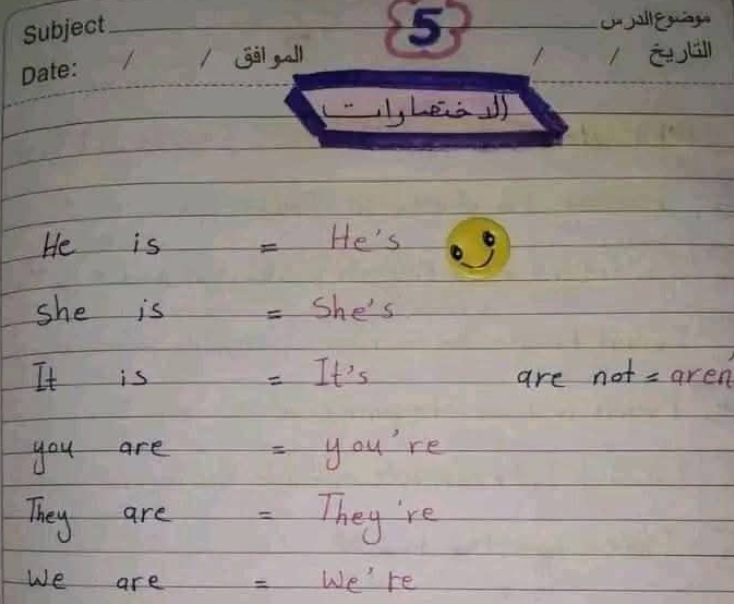 Subject 5 موضوع الدرس
Date: / / الموافق / / التاريخ
الاختصارات
He is = He's
she is = She's
It is = It's are not = aren'
you are = you're
They are = They're
We are = We're